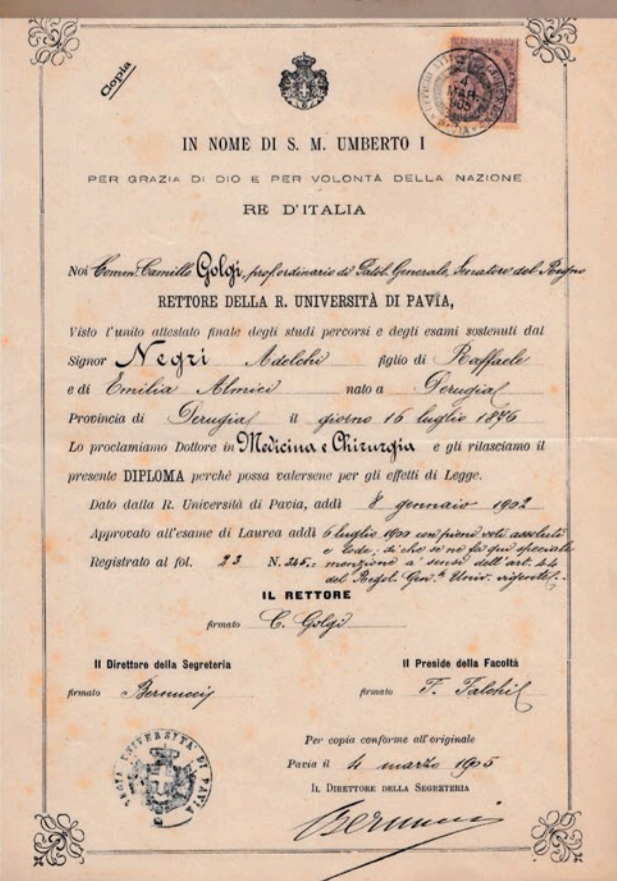 Copia
4
MAR
905
PAVIA
IN NOME DI S. M. UMBERTO I
PER GRAZIA DI DIO E PER VOLONTÀ DELLA NAZIONE
RE D'ITALIA
Noi Comm. Camillo Golgi, prof. ordinario di Patol. Generale, Senatore del Regno
RETTORE DELLA R. UNIVERSITÀ DI PAVIA,
Visto l'unito attestato finale degli studi percorsi e degli esami sostenuti dal
Signor Negri Adelchi figlio di Raffaele
e di Emilia Almici nato a Perugia
Provincia di Perugia il giorno 16 luglio 1876
Lo proclamiamo Dottore in Medicina e Chirurgia e gli rilasciamo il
presente DIPLOMA perchè possa valersene per gli effetti di Legge.
Dato dalla R. Università di Pavia, addì 8 gennaio 1902
Approvato all'esame di Laurea addì 6 luglio 1900 con pieni voti assoluti
e lode; di che se ne fa qui speciale
Registrato al fol. 23 N. 345.: menzione a' sensi dell'art. 44
del Regol. Gen. Univ. vigente.
IL RETTORE
firmato C. Golgi
Il Direttore della Segreteria Il Preside della Facoltà
firmato Bernucci firmato
Per copia conforme all'originale
Pavia il 4 marzo 1905
IL DIRETTORE DELLA SEGRETERIA
Bernucci
REGIA UNIVERSITA' DI PAVIA